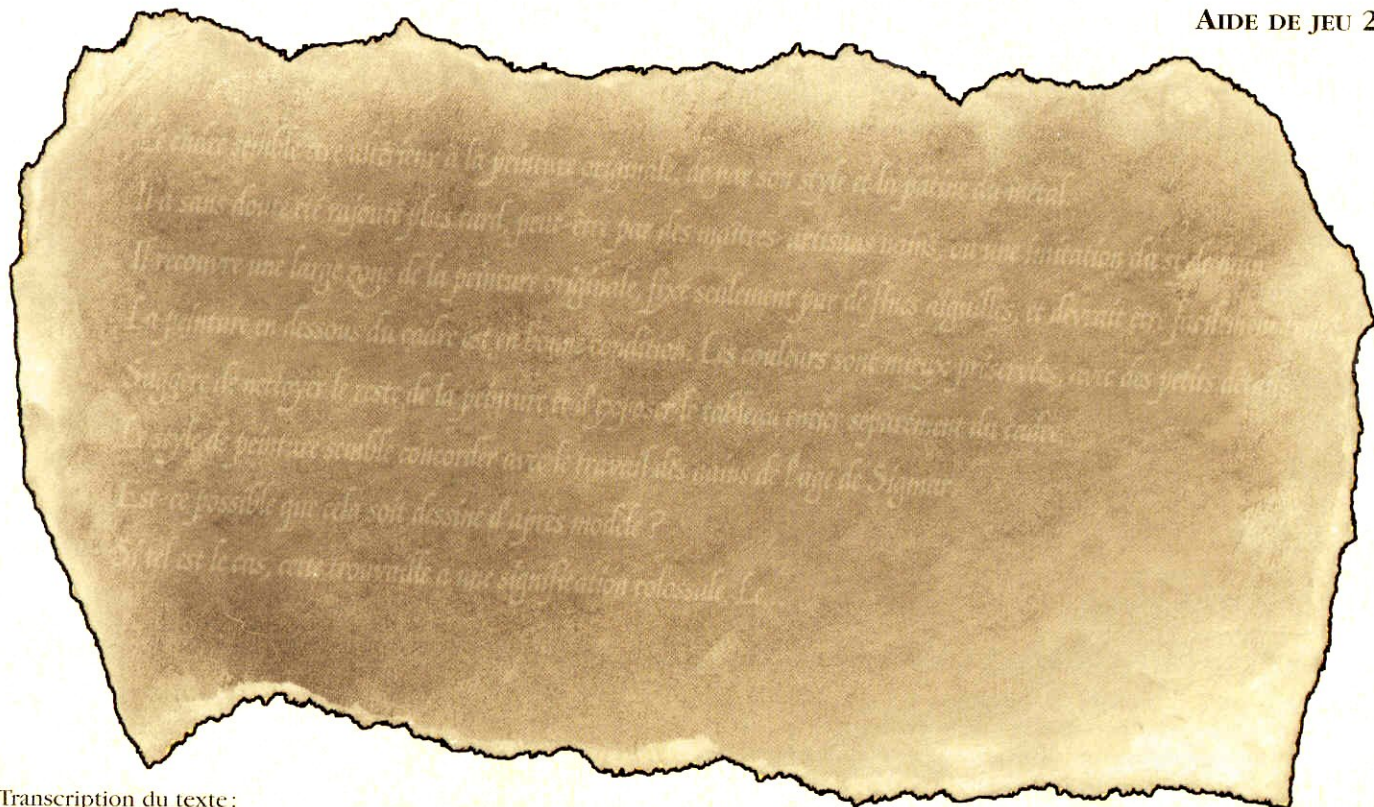 AIDE DE JEU 2
Le cadre semble être antérieur à la peinture originale, de par son style et la patine du métal.
Il a sans doute été rajouté plus tard, peut-être par des maîtres artisans nains, ou une imitation du style nain.
Il recouvre une large zone de la peinture originale, fixé seulement par de fines aiguilles, et devrait être facilement
La peinture en dessous du cadre est en bonne condition. Les couleurs sont mieux préservées, avec des petits détails.
Suggère de nettoyer le reste de la peinture et d'exposer le tableau entier séparément du cadre.
Le style de peinture semble concorder avec le travail des nains de l'age de Sigmar.
Est-ce possible que cela soit dessiné d'après modèle ?
Si tel est le cas, cette trouvaille a une signification colossale. Le
Transcription du texte :